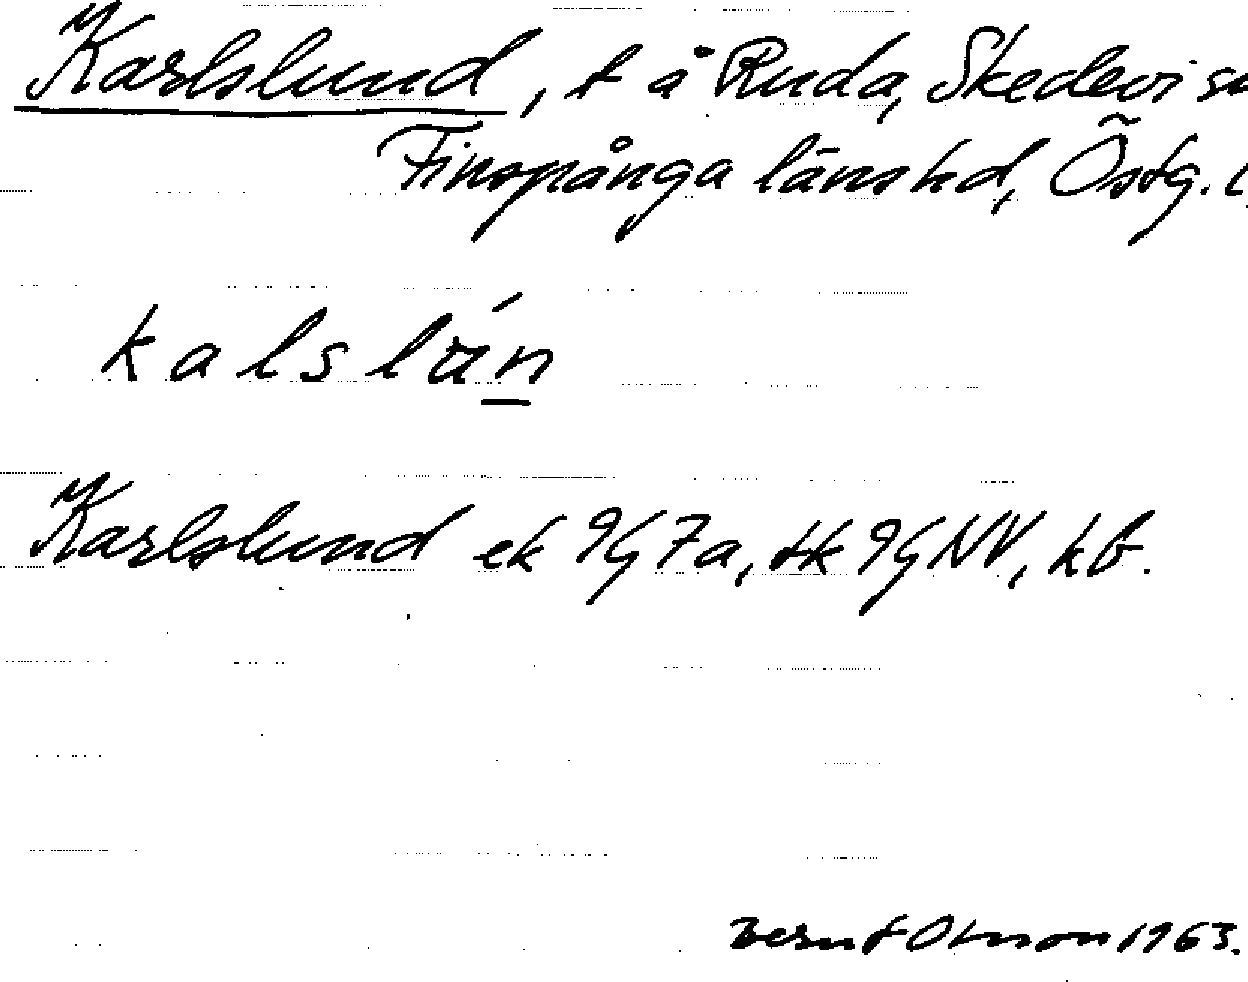 Karlslund, t å Ruda, Skedevi sn
Finspånga länshd, Östg. l.
kalslu̇́n
Karlslund ek 9G7a, tk 9GNV, kb.
Bernt Olsson 1963.